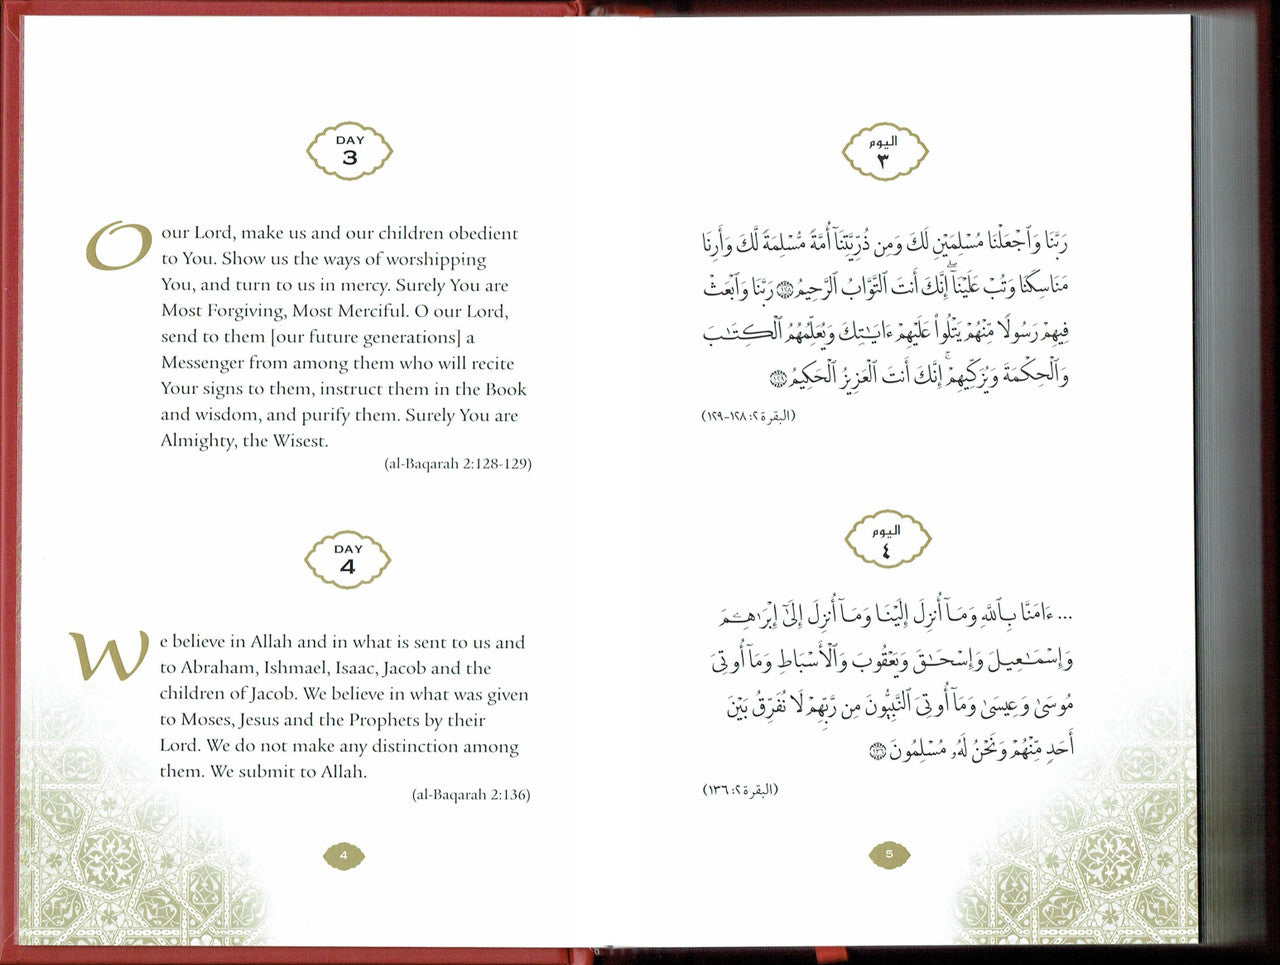 DAY
3
O our Lord, make us and our children obedient
to You. Show us the ways of worshipping
You, and turn to us in mercy. Surely You are
Most Forgiving, Most Merciful. O our Lord,
send to them [our future generations] a
Messenger from among them who will recite
Your signs to them, instruct them in the Book
and wisdom, and purify them. Surely You are
Almighty, the Wisest.
(al-Baqarah 2:128-129)
DAY
4
We believe in Allah and in what is sent to us and
to Abraham, Ishmael, Isaac, Jacob and the
children of Jacob. We believe in what was given
to Moses, Jesus and the Prophets by their
Lord. We do not make any distinction among
them. We submit to Allah.
(al-Baqarah 2:136)
4
اليوم
٣
رَبَّنَا وَٱجْعَلْنَا مُسْلِمَيْنِ لَكَ وَمِن ذُرِّيَّتِنَآ أُمَّةً مُّسْلِمَةً لَّكَ وَأَرِنَا
مَنَاسِكَنَا وَتُبْ عَلَيْنَآ ۖ إِنَّكَ أَنتَ ٱلتَّوَّابُ ٱلرَّحِيمُ ۝١٢٨ رَبَّنَا وَٱبْعَثْ
فِيهِمْ رَسُولًا مِّنْهُمْ يَتْلُوا۟ عَلَيْهِمْ ءَايَـٰتِكَ وَيُعَلِّمُهُمُ ٱلْكِتَـٰبَ
وَٱلْحِكْمَةَ وَيُزَكِّيهِمْ ۚ إِنَّكَ أَنتَ ٱلْعَزِيزُ ٱلْحَكِيمُ ۝١٢٩
(البقرة ٢: ١٢٨-١٢٩)
اليوم
٤
... ءَامَنَّا بِٱللَّهِ وَمَآ أُنزِلَ إِلَيْنَا وَمَآ أُنزِلَ إِلَىٰٓ إِبْرَٰهِـۧمَ
وَإِسْمَـٰعِيلَ وَإِسْحَـٰقَ وَيَعْقُوبَ وَٱلْأَسْبَاطِ وَمَآ أُوتِىَ
مُوسَىٰ وَعِيسَىٰ وَمَآ أُوتِىَ ٱلنَّبِيُّونَ مِن رَّبِّهِمْ لَا نُفَرِّقُ بَيْنَ
أَحَدٍ مِّنْهُمْ وَنَحْنُ لَهُۥ مُسْلِمُونَ ۝١٣٦
(البقرة ٢: ١٣٦)
5